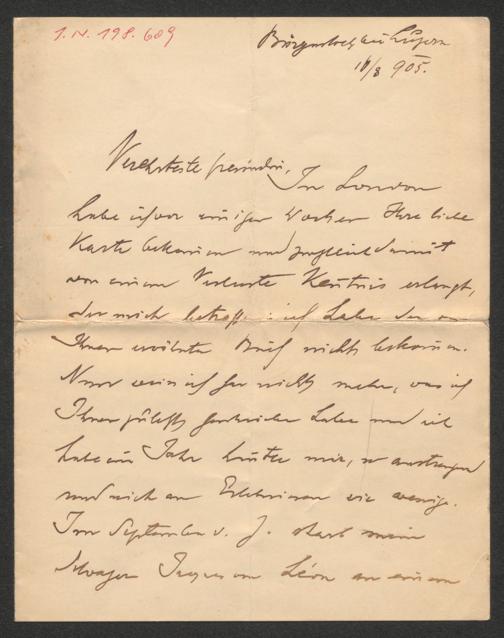 I.N. 198.609
Bürgenstock bei Luzern
11/8 905.
Verehrteste Freundin,
In London
habe ich vor einigen Wochen Ihre liebe
Karte bekommen und zugleich damit
von einem Verluste Kentnis erlangt,
der mich betroffen: ich habe den von
Ihnen erwähnten Brief nicht bekommen.
Nun weiss ich gar nicht mehr, was ich
Ihnen zuletzt geschrieben habe und ich
habe ein Jahr hinter mir, so anstrengend
und reich an Erlebnissen wie wenige.
Im September v. J. starb mein
Schwager Léon an einem